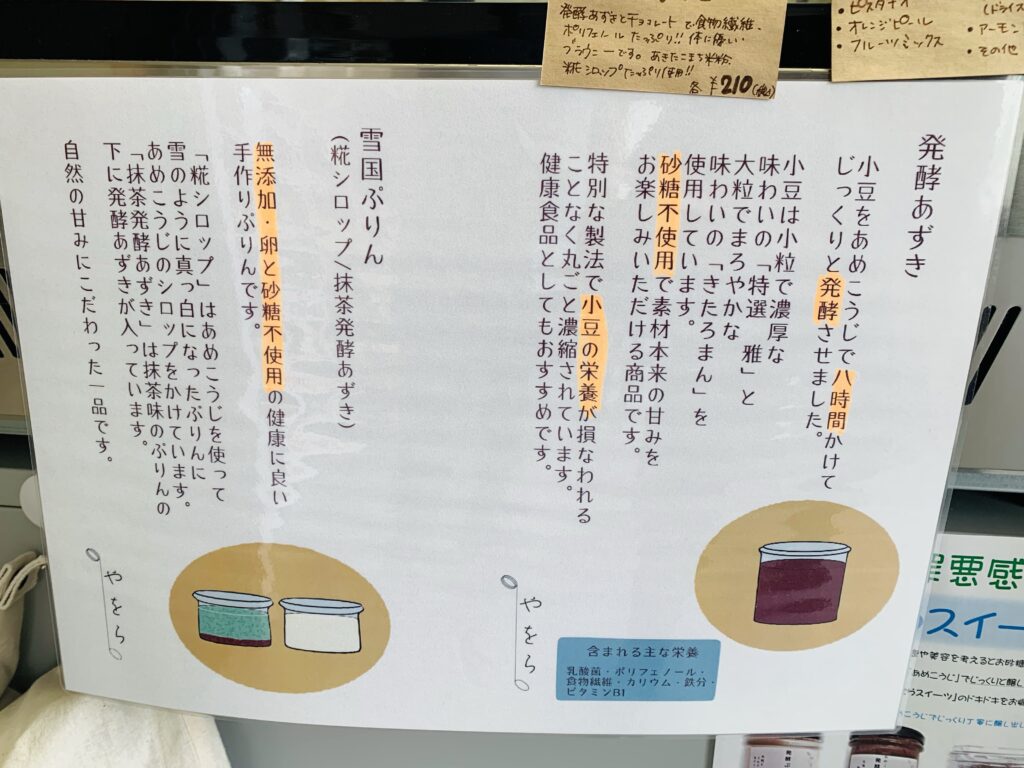 発酵あずきとチョコレートで食物繊維、
ポリフェノールたっぷり!!体に優しい
ブラウニーです。あきたこまち米粉
糀シロップたっぷり使用!!
各 ¥210(税込)
・ピスタチオ
・オレンジピール
・フルーツミックス
(ドライス
・アーモン
・その他
発酵あずき
小豆をあめこうじで八時間かけて
じっくりと発酵させました。
小豆は小粒で濃厚な
味わいの「特選 雅」と
大粒でまろやかな
味わいの「きたろまん」を
使用しています。
砂糖不使用で素材本来の甘みを
お楽しみいただける商品です。
特別な製法で小豆の栄養が損なわれる
ことなく丸ごと濃縮されています。
健康食品としてもおすすめです。
やをら
含まれる主な栄養
乳酸菌・ポリフェノール・
食物繊維・カリウム・鉄分・
ビタミンB1
雪国ぷりん
(糀シロップ/抹茶発酵あずき)
無添加・卵と砂糖不使用の健康に良い
手作りぷりんです。
「糀シロップ」はあめこうじを使って
雪のように真っ白になったぷりんに
あめこうじのシロップをかけています。
「抹茶発酵あずき」は抹茶味のぷりんの
下に発酵あずきが入っています。
自然の甘みにこだわった一品です。
やをら
罪悪感
スイー
や美容を考えるとお砂糖
あめこうじ」でじっくりと醸し
うスイーツ」のドキドキをお
こうじでじっくり丁寧に醸し出